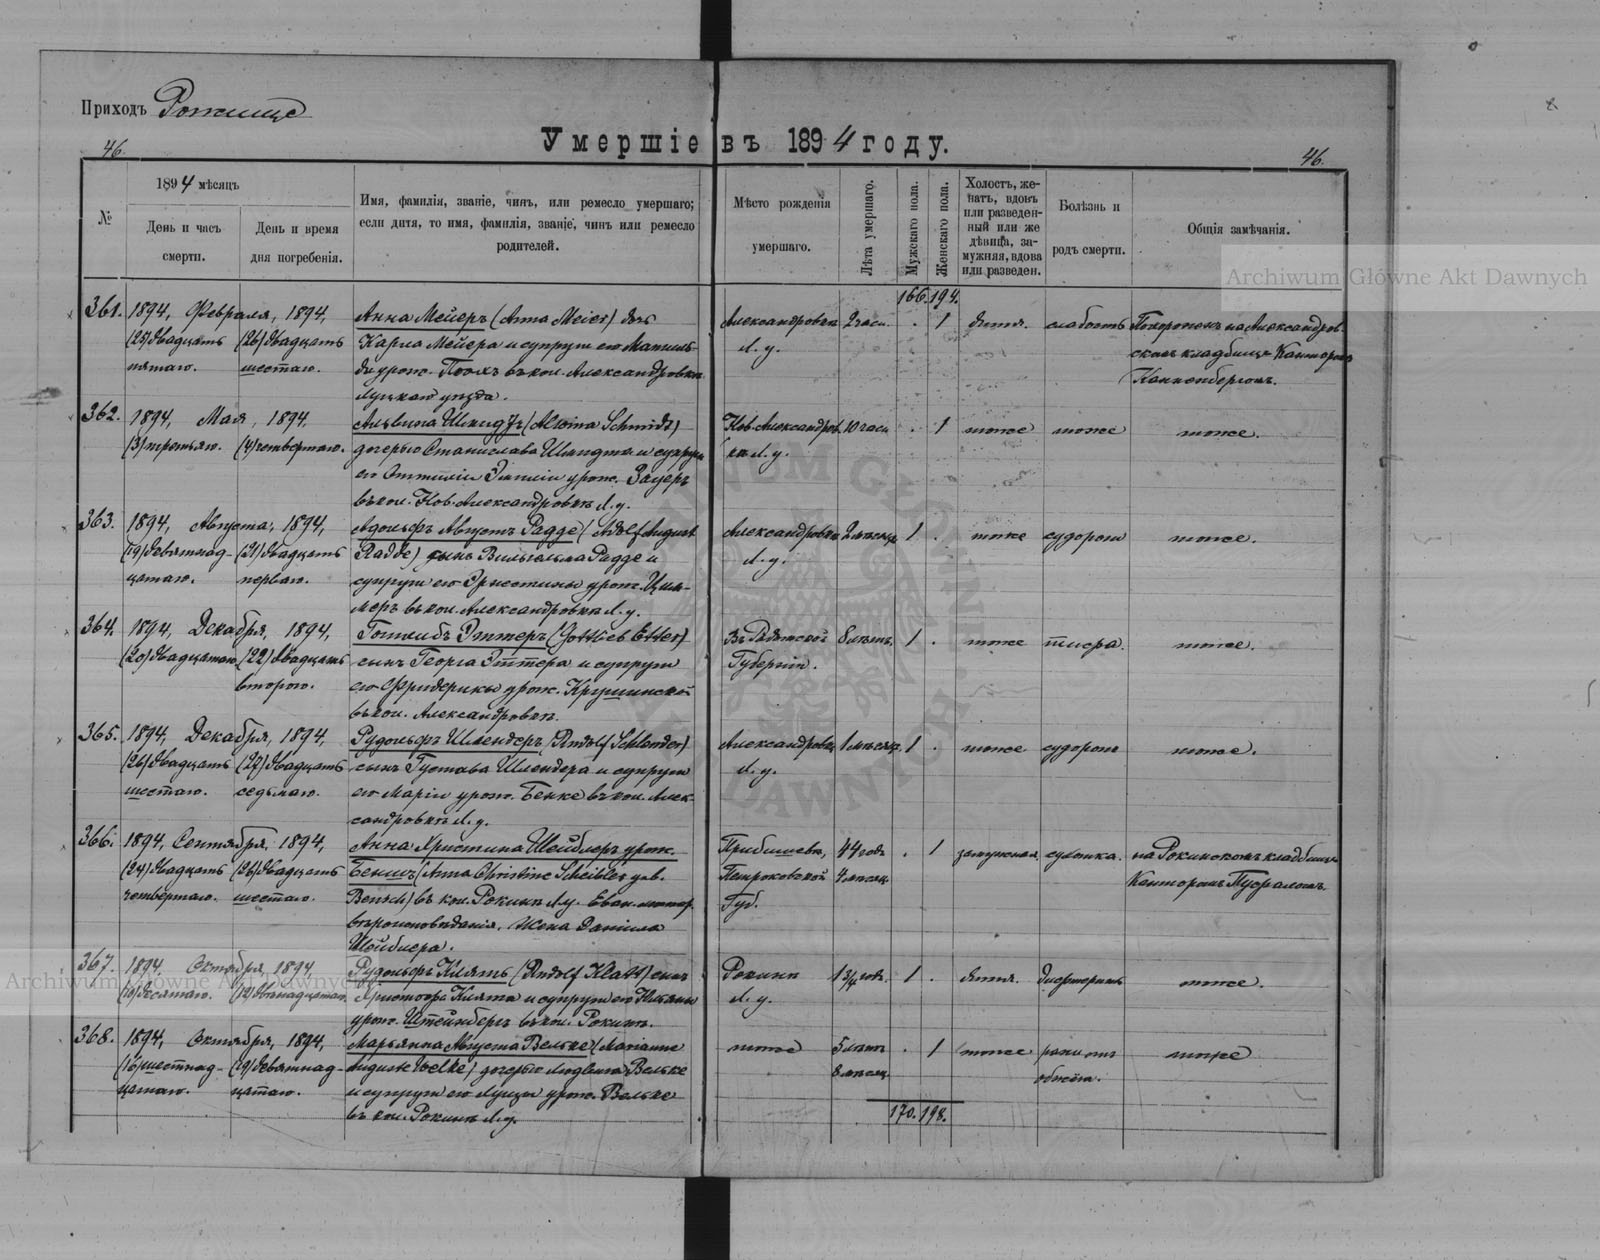 Приходъ Рожище
Умершіе въ 1894 году.
46.
46.
№
1894 мѣсяцъ
День и часъ смерти.
День и время дня погребенія.
Имя, фамилія, званіе, чинъ, или ремесло умершаго;
если дитя, то имя, фамилія, званіе, чинъ или ремесло
родителей.
Мѣсто рожденія
умершаго.
Лѣта умершаго.
Мужскаго пола.
Женскаго пола.
Холостъ, же-
натъ, вдовъ
или разведен-
ный или же
дѣвица, за-
мужняя, вдова
или разведен.
Болѣзнь и
родъ смерти.
Общія замѣчанія.
Archiwum Główne Akt Dawnych
166. 194.
361. 1894, Февраля, 1894, Анна Мейеръ (Anna Meier) дочь Александровка 2 часа . 1 дитя. слабость Похоронена на Александров-
(25) двадцать (26) двадцать Карла Мейера и супруги его Матиль- Л. у. скомъ кладбищѣ Канторомъ
пятаго. шестаго. ды урож. въ кол. Александровкѣ
Луцкаго уѣзда.
362. 1894, Мая, 1894. Альвина Шмидтъ (Alwina Schmidt) Нов. Александров- 10 часа . 1 тоже тоже тоже.
(3) третьяго. (4) четвертаго. дочерью Станислава Шмидта и супруги ка Л. у.
его Оттиліи Эмиліи урож. Зауеръ
въ кол. Нов. Александровкѣ Л. у.
363. 1894, Августа, 1894, Адольфъ Августъ Радде (Adolf August Александровка 2 мѣсяца 1 . тоже судороги тоже.
(19) девятнад- (21) двадцать Radde) сынъ Вильгельма Радде и Л. у.
цатаго. перваго. супруги его Эрнестины урож. Цим-
меръ въ кол. Александровкѣ Л. у.
364. 1894, Декабря, 1894, Готлибъ Эттеръ (Gottlieb Etter) Въ Губерніи. 8 лѣтъ 1 . тоже тоже.
(20) двадцатаго (22) двадцать сынъ Георга Эттера и супруги
втораго. его Фридерики урож. Крушинской
въ кол. Александровкѣ.
365. 1894, Декабря, 1894, Рудольфъ Шлендеръ (Rudolf Schlender) Александровка 1 мѣсяцъ 1 . тоже судороги тоже.
(26) двадцать (27) двадцать сынъ Густава Шлендера и супруги Л. у.
шестаго. седьмаго. его Маріи урож. Бенке въ кол. Алек-
сандровкѣ Л. у.
366. 1894, Сентября, 1894, Анна Христина Шейблеръ урож. Петроковской Губ. 44 года 4 мѣсяца . 1 замужная на Рокинскомъ кладбищѣ
(24) двадцать (26) двадцать Беншъ (Anna Christine Scheibler geb. Канторомъ
четвертаго. шестаго. Bensch) въ кол. Рокини Л. у. Еван. лютер.
вѣроисповѣданія. Жена Даніила
Шейблера.
367. 1894, Октября, 1894, Рудольфъ Клятъ (Rudolf Klatt) сынъ Рокини 1 3/4 года. 1 . дитя. дифтеритъ тоже.
(10) десятаго. (12) двѣнадцатаго. Христофа Клята и супруги его Л. у.
урож. Штейнбергъ въ кол. Рокини.
368. 1894, Октября, 1894, Марьянна Августа Вельке (Marianne тоже 5 лѣтъ . 1 тоже тоже
(16) шестнад- (19) девятнад- Auguste Welke) дочерью Людвига Вельке 8 мѣсяц.
цатаго. цатаго. и супруги его Луизы урож. Вельке
въ кол. Рокини Л. у.
170. 198.
Archiwum Główne Akt Dawnych